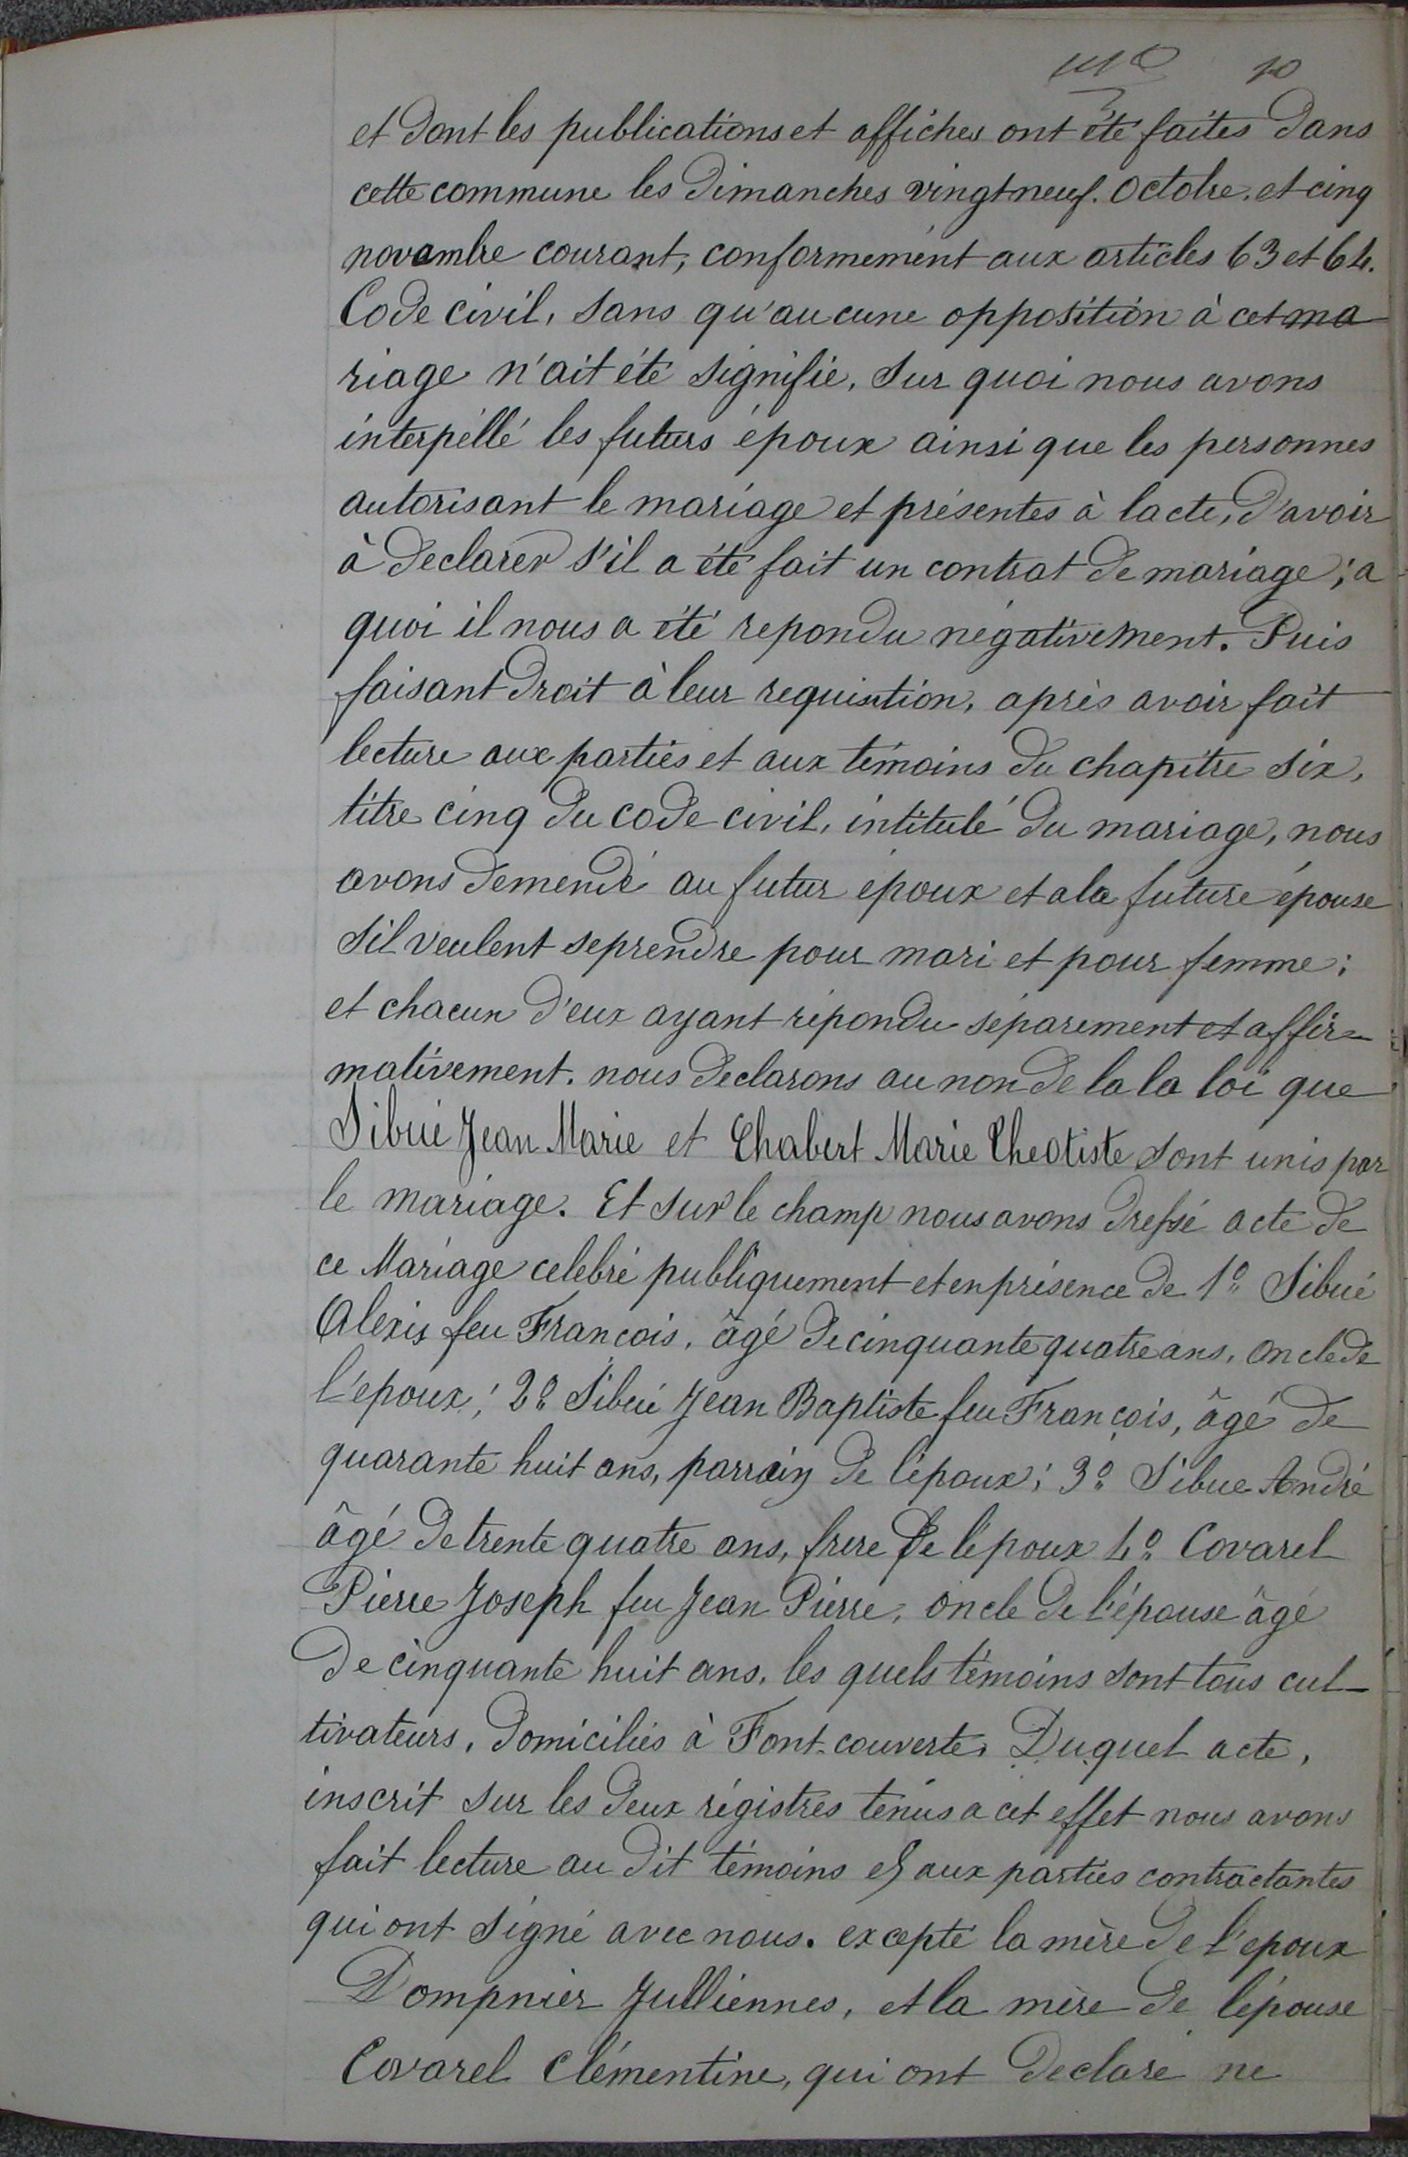 10
et dont les publications et affiches ont été faites dans
cette commune les dimanches vingt neuf. Octobre. et cinq
novembre courant, conformément aux articles 63 et 64.
Code civil, sans qu'aucune opposition à cet ma
riage n'ait été signifié, sur quoi nous avons
interpéllé les futurs époux ainsi que les personnes
autorisant le mariage et présentes à lacte, d'avoir
à declarer s'il a été fait un contrat de mariage; a
quoi il nous a été repondu négativement. Puis
faisant droit à leur requisition, après avoir fait
lecture aux parties et aux témoins du chapitre six,
titre cinq du code civil, intitulé du mariage, nous
avons demendé au futur époux et a la future épouse
sil veulent se prendre pour mari et pour femme;
et chacun d'eux ayant répondu séparément et affir-
mativement. nous declarons au non de la la loi que
Sibué Jean Marie et Chabert Marie Theotiste sont unis par
le mariage. Et sur le champ nous avons dressé acte de
ce Mariage celebré publiquement et en présence de 1º Sibué
Alexis feu Francois, âgé de cinquante quatre ans, oncle de
l'epoux; 2º Sibué Jean Baptiste feu François, âgé de
quarante huit ans, parrain de l'époux; 3º Sibue André
âgé de trente quatre ans, frere de l'époux 4º Covarel
Pierre Joseph feu Jean Pierre, oncle de l'épouse âgé
de cinquante huit ans, les quels témoins sont tous cul-
tivateurs, domiciliés à Font-couverte. Duquel acte,
inscrit sur les deux régistres ténus a cet effet nous avons
fait lecture au dit témoins et aux parties contractantes
qui ont signé avec nous. excepté la mère de l'epoux
Dompnier Julliennes, et la mère de l'épouse
Covarel Clémentine, qui ont declaré ne